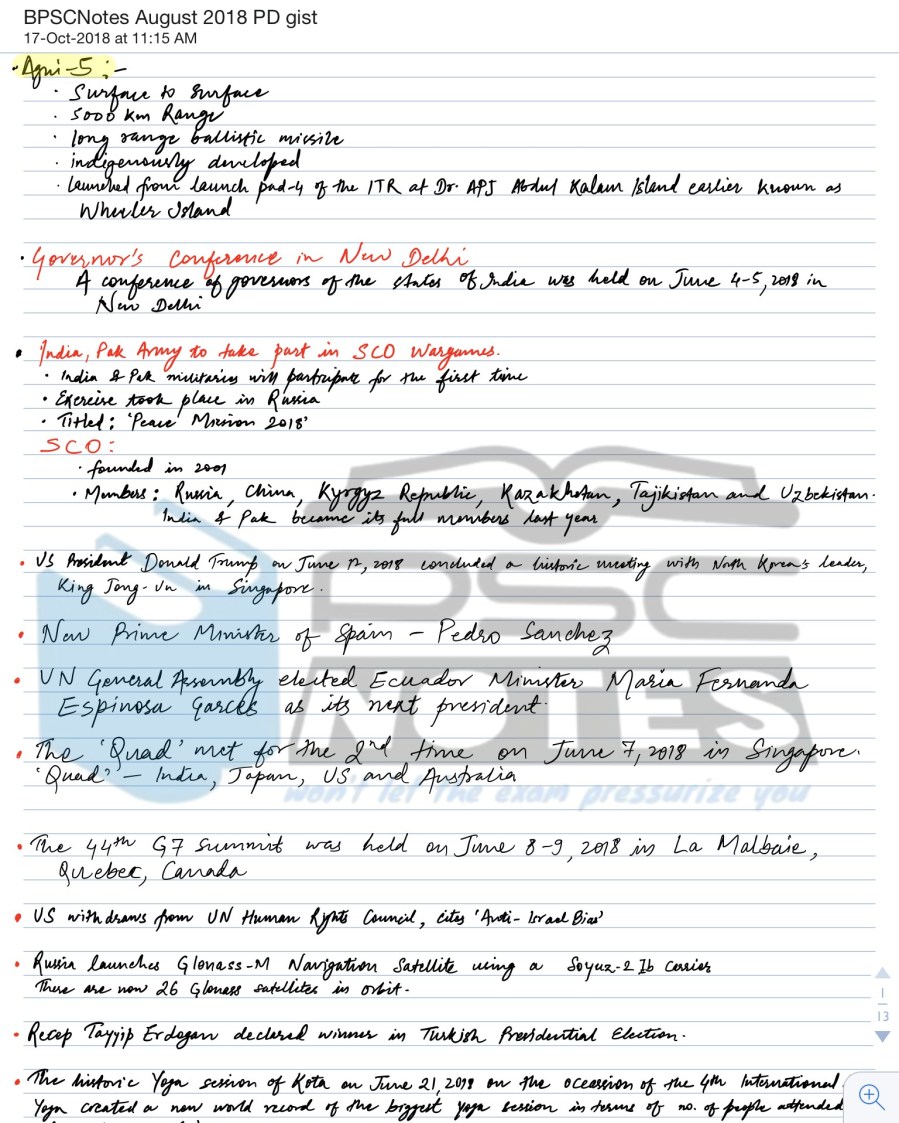 BPSCNotes August 2018 PD gist
17-Oct-2018 at 11:15 AM
· Agni-5 :-
· Surface to Surface
· 5000 Km Range
· long range ballistic missile
· indigenously developed
· launched from launch pad-4 of the ITR at Dr. APJ Abdul Kalam Island earlier known as
Wheeler Island
· Governor's Conference in New Delhi
A conference of governors of the states of India was held on June 4-5, 2018 in
New Delhi
• India, Pak Army to take part in SCO Wargames.
· India & Pak militaries will participate for the first time
• Exercise took place in Russia
· Titled : 'Peace Mission 2018'
SCO :
· founded in 2001
• Members : Russia, China, Kyrgyz Republic, Kazakhstan, Tajikistan and Uzbekistan.
India & Pak became its full members last year
• US President Donald Trump on June 12, 2018 concluded a historic meeting with North Korea's leader,
King Jong-Un in Singapore.
• New Prime Minister of Spain – Pedro Sanchez
• UN General Assembly elected Ecuador Minister Maria Fernanda
Espinosa Garces as its next president.
• The 'Quad' met for the 2nd time on June 7, 2018 in Singapore.
'Quad' – India, Japan, US and Australia
PSC
NOTES
won't let the exam pressurize you
• The 44th G7 Summit was held on June 8-9, 2018 in La Malbaie,
Quebec, Canada
• US withdraws from UN Human Rights Council, cites 'Anti-Israel Bias'
• Russia launches Glonass-M Navigation Satellite using a Soyuz-2 1b Carrier
There are now 26 Glonass satellites in orbit.
• Recep Tayyip Erdogan declared winner in Turkish Presidential Election.
• The historic Yoga session of Kota on June 21, 2018 on the occassion of the 4th International
Yoga created a new world record of the biggest yoga session in terms of no. of people attended
1
13